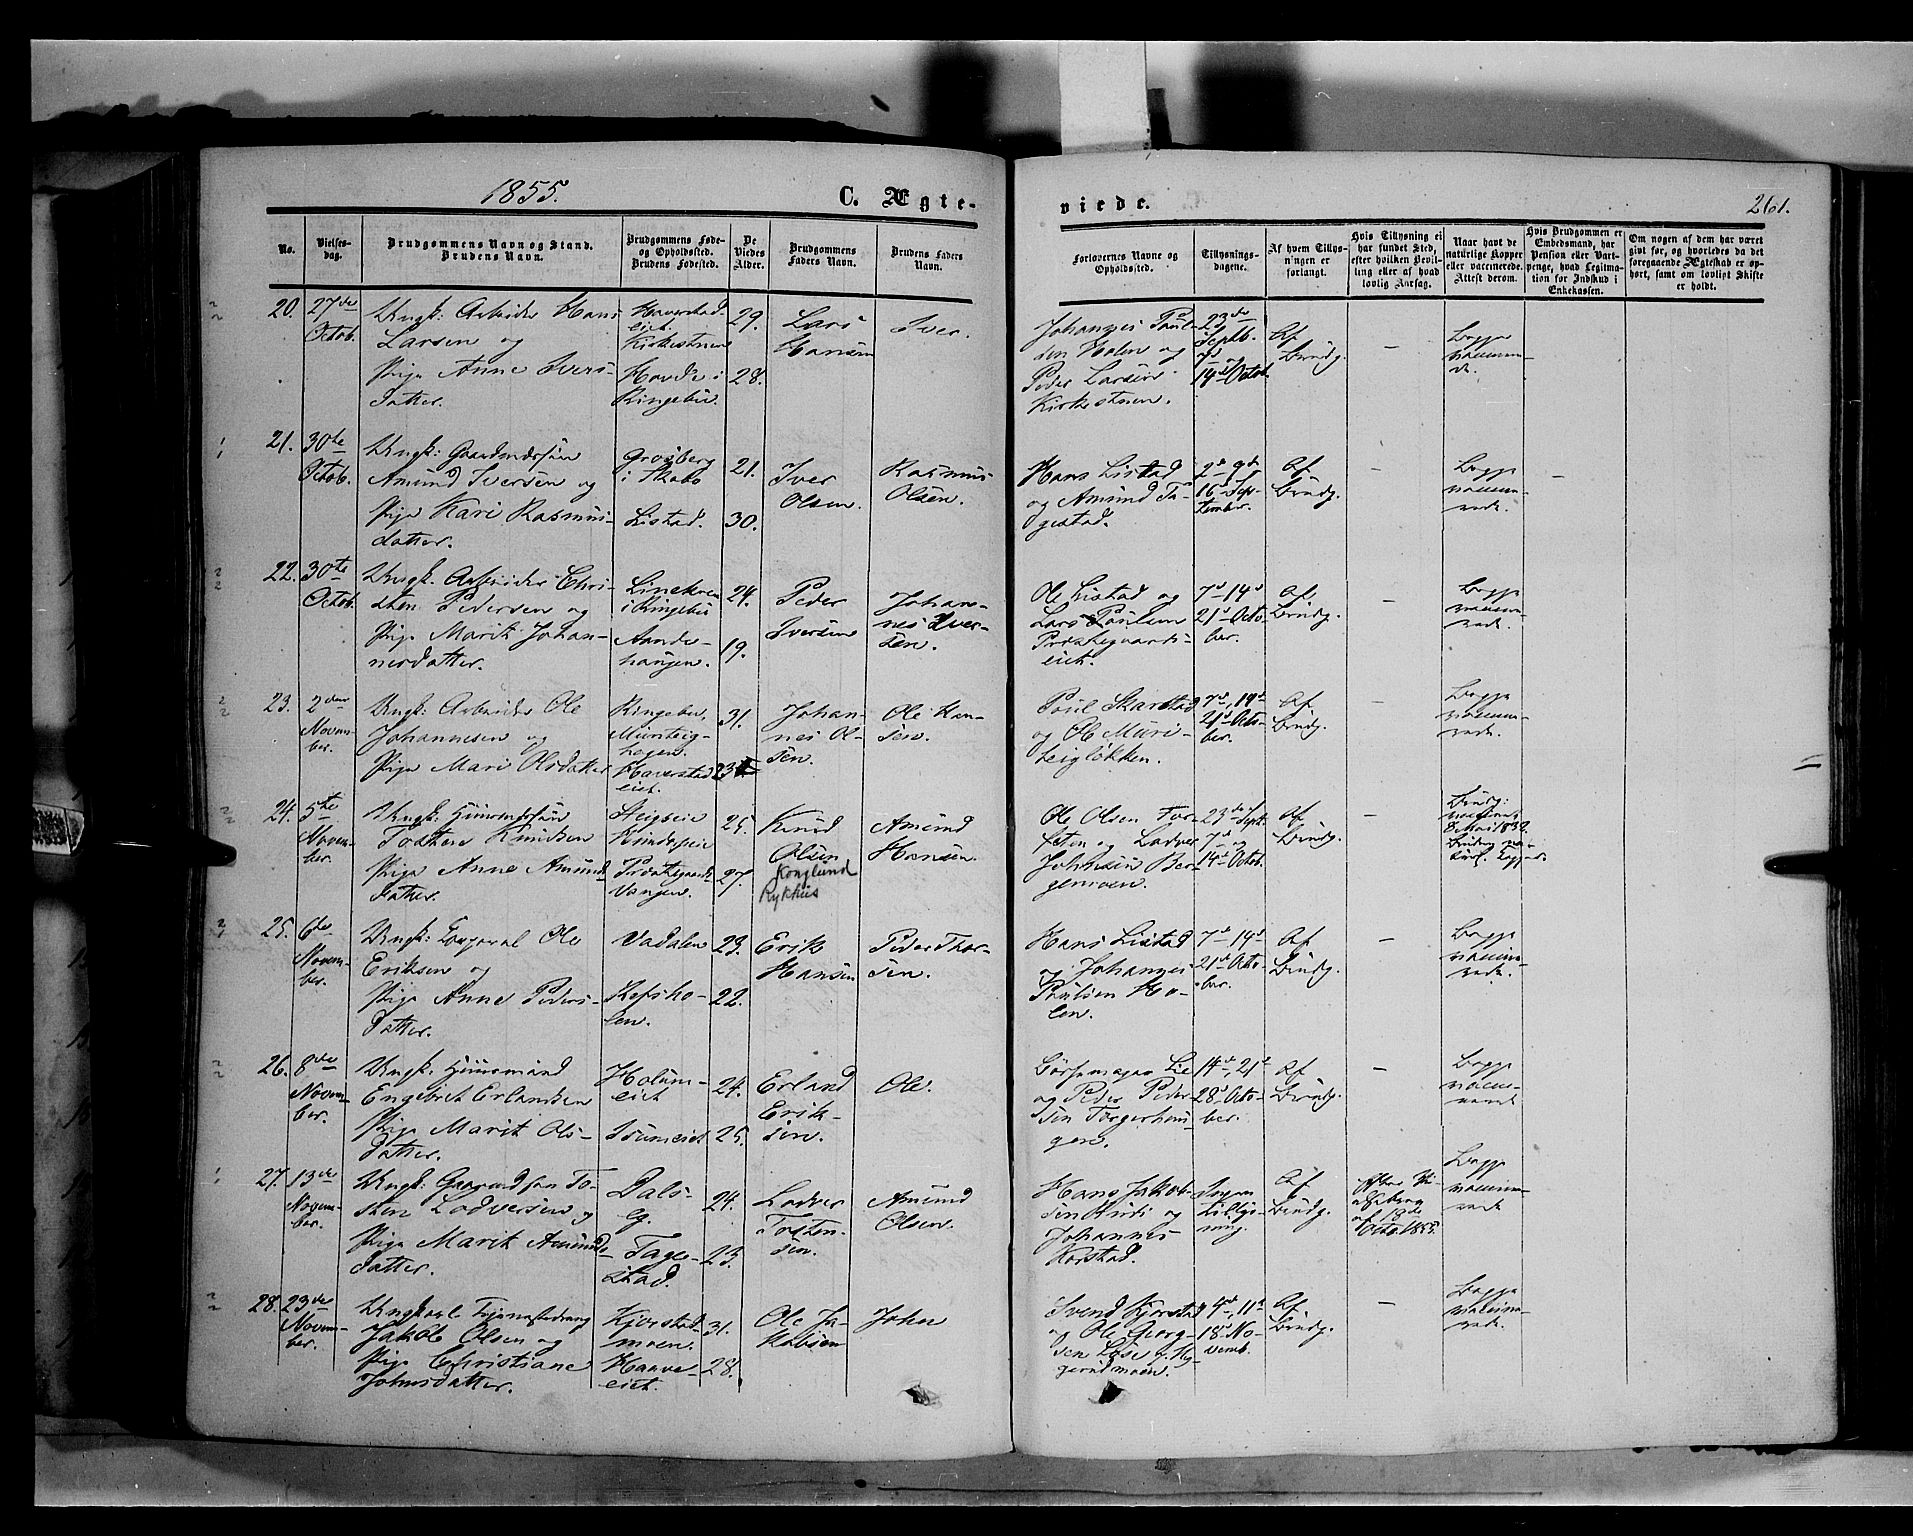 1855.
C. Ægte-
viede.
261.
No.
Vielses-
dag.
Brudgommens Navn og Stand.
Brudens Navn.
Brudgommens Føde-
og Opholdssted.
Brudens Fødested.
De
Viedes
Alder.
Brudgommens
Faders Navn.
Brudens Faders
Navn.
Forlovernes Navne og
Opholdssted.
Tillysnings-
dagene.
Af hvem Tillys-
ningen er
forlangt.
Hvis Tillysning ei
har fundet Sted,
efter hvilken Bevil-
ling eller af hvad
lovlig Aarsag.
Naar havt de
naturlige Kopper
eller vaccinerede.
Attest derom.
Hvis Brudgommen er
Embedsmand, har
Pension eller Vart-
penge, hvad Legitima-
tion for Indskud i
Enkekassen.
Om nogen af dem har været
gift før, og hvorledes da det
foregaaende Ægteskab er op-
hørt, samt om lovligt Skifte
er holdt.
20.
27de
Octob.
Ungk: Arbeider Hans
Larsen og
Pige Anne Ivers-
datter.
Haverstad-
eiet
Kirkestuen
Hovde i
Ringebu.
29.
28.
Lars
Hansen
Iver.
Johannes Poul-
sen Holen og
Peder Larsen
Kirkestuen.
23de
Septb.
7d og
14d Octob.
Af
Brudg.
–
Begge
vaccine-
rede.
21.
30te
Octob.
Ungk: Gaardmandssøn
Amund Iversen og
Pige Kari Rasmus-
datter.
Grosberg
i Skabo
Listad.
21.
30.
Iver
Olsen.
Rasmus
Olsen.
Hans Listad
og Amund Ta-
gestad.
2d 9d og
16d Sep-
tember.
Af
Brudg.
–
Begge
vaccine-
rede.
–
22.
30te
Octob.
Ungk. Arbeider Chri-
sten Pedersen og
Pige Marit Johan-
nesdatter.
i Ringebu
24.
19.
Peder
Iversen
Johan-
nes Iver-
sen.
Ole Listad og
Lars Poulsen
Præstegaards-
eiet.
7d 14d
21d Octo-
ber.
Af
Brudg.
–
Begge
vaccine-
rede.
23.
2den
Novem-
ber.
Ungk: Arbeider Ole
Johannesen og
Pige Mari Olsdatter
Ringebu,
Haverstad-
eiet.
31.
23
Johan-
nes Ol-
sen.
Ole Han-
sen.
Poul Skarstad
og Ole Muri-
teigløkken.
7d, 14d
21d Octo-
ber.
Af
Brudg.
–
Begge
vaccine-
rede.
24.
5te
Novem-
ber.
Ungk: Huusmandssøn
Tosten Knudsen
Pige Anne Amunds-
datter.
Præstegaards-
vangen.
25.
27.
Knud
Olsen
Konglund
Rykhus
Amund
Hansen.
Ole Olsen For-
seten og Ladver
Johnsen Ber-
gemoen.
23de Septb.
7d og
14d Octob.
Af
Brudg.
Brudg:
vaccineret
8 Mai 1832.
25.
6te
Novem-
ber.
Ungk: Corporal Ole
Eriksen og
Pige Anne Peders-
datter.
Vadalen
Refsho-
len.
23.
22.
Erik
Hansen
Peder Thor-
sen.
Hans Listad
og Johannes
Poulsen Ho-
len.
7d 14d
21d Octo-
ber.
Af
Brudg.
–
Begge
vaccine-
rede.
26.
8de
Novem-
ber.
Ungk: Huusmand
Engebret Erlandsen
Pige Marit Ols-
datter.
Holum-
eiet
24.
25.
Erland
Erik-
sen.
Ole.
og Peder Peder-
sen Torgerhau-
gen.
14d, 21d
28d Octo-
ber.
Af
Brudg.
–
Begge
vaccine-
rede
27.
13de
Novem-
ber.
Ungk: Gaardmandssøn To-
sten Ladversen og
Pige Marit Amunds-
datter.
Dals-
eg.
Tage-
stad.
24.
23.
Ladver
Tosten-
sen.
Amund
Olsen.
Hans Jakob-
sen Hudi og
Johannes
Korstad.
Ingen
Tillys-
ning.
Af
Brudg.
af 18de
Octo. 1855.
Begge
vaccine-
rede
28.
23de
Novem-
ber.
Jakob Olsen og
Pige Christiane
Johnsdatter.
Kjorstad-
moen.
Haave-
eiet.
31.
28.
Ole Ja-
kobsen
John
Svend Kjorstad
og Ole Georg-
4d, 11d
18d No-
vemb.
Af
Brudg.
–
Begge
vaccine-
rede.